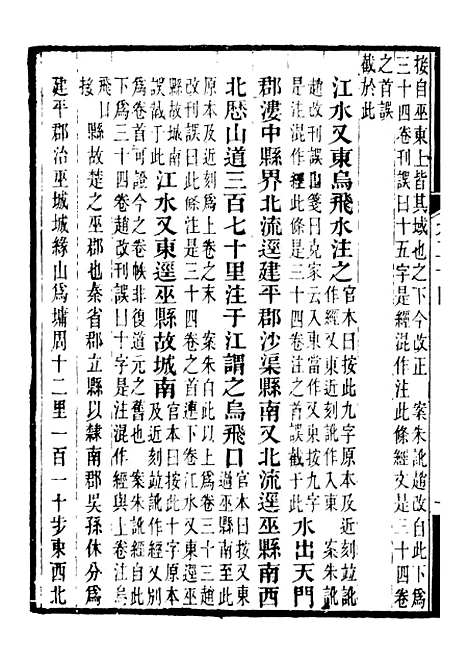 按自巫東上皆其域也之下今改正　案朱訛趙改自此下爲
三十四卷刊誤曰十五字是經混注此條經文是三十四卷
之首誤
截於此
江水又東烏飛水注之
官本曰按此九字原本及近刻竝訛
作經又東近刻訛作入東　案朱訛
趙改刊誤曰箋曰克家云入東當作又東按九字
是注混作經此條是三十四卷之首誤截于此
水出天門
郡漊中縣界北流逕建平郡沙渠縣南又北流逕巫縣南西
北歷山道三百七十里注于江謂之烏飛口
官本曰按又東
過巫縣南至此
原本及近刻爲上卷之末　案朱自此以上爲卷三十三趙
改刊誤曰此條注首連下卷江水又東逕巫
縣故城南
誤截于此
江水又東逕巫縣故城南
官本曰按此十字原本
及近刻竝訛作經又別
下爲卷首可證今之卷帙非復道元之舊也　案朱訛作經
下爲三十四卷趙改刊誤曰十字是注混作經與上卷注烏
飛口
接
縣故楚之巫郡也秦省郡立縣以隸南郡吳孫休分爲
建平郡治巫城城緣山爲墉周十二里一百一十步東西北